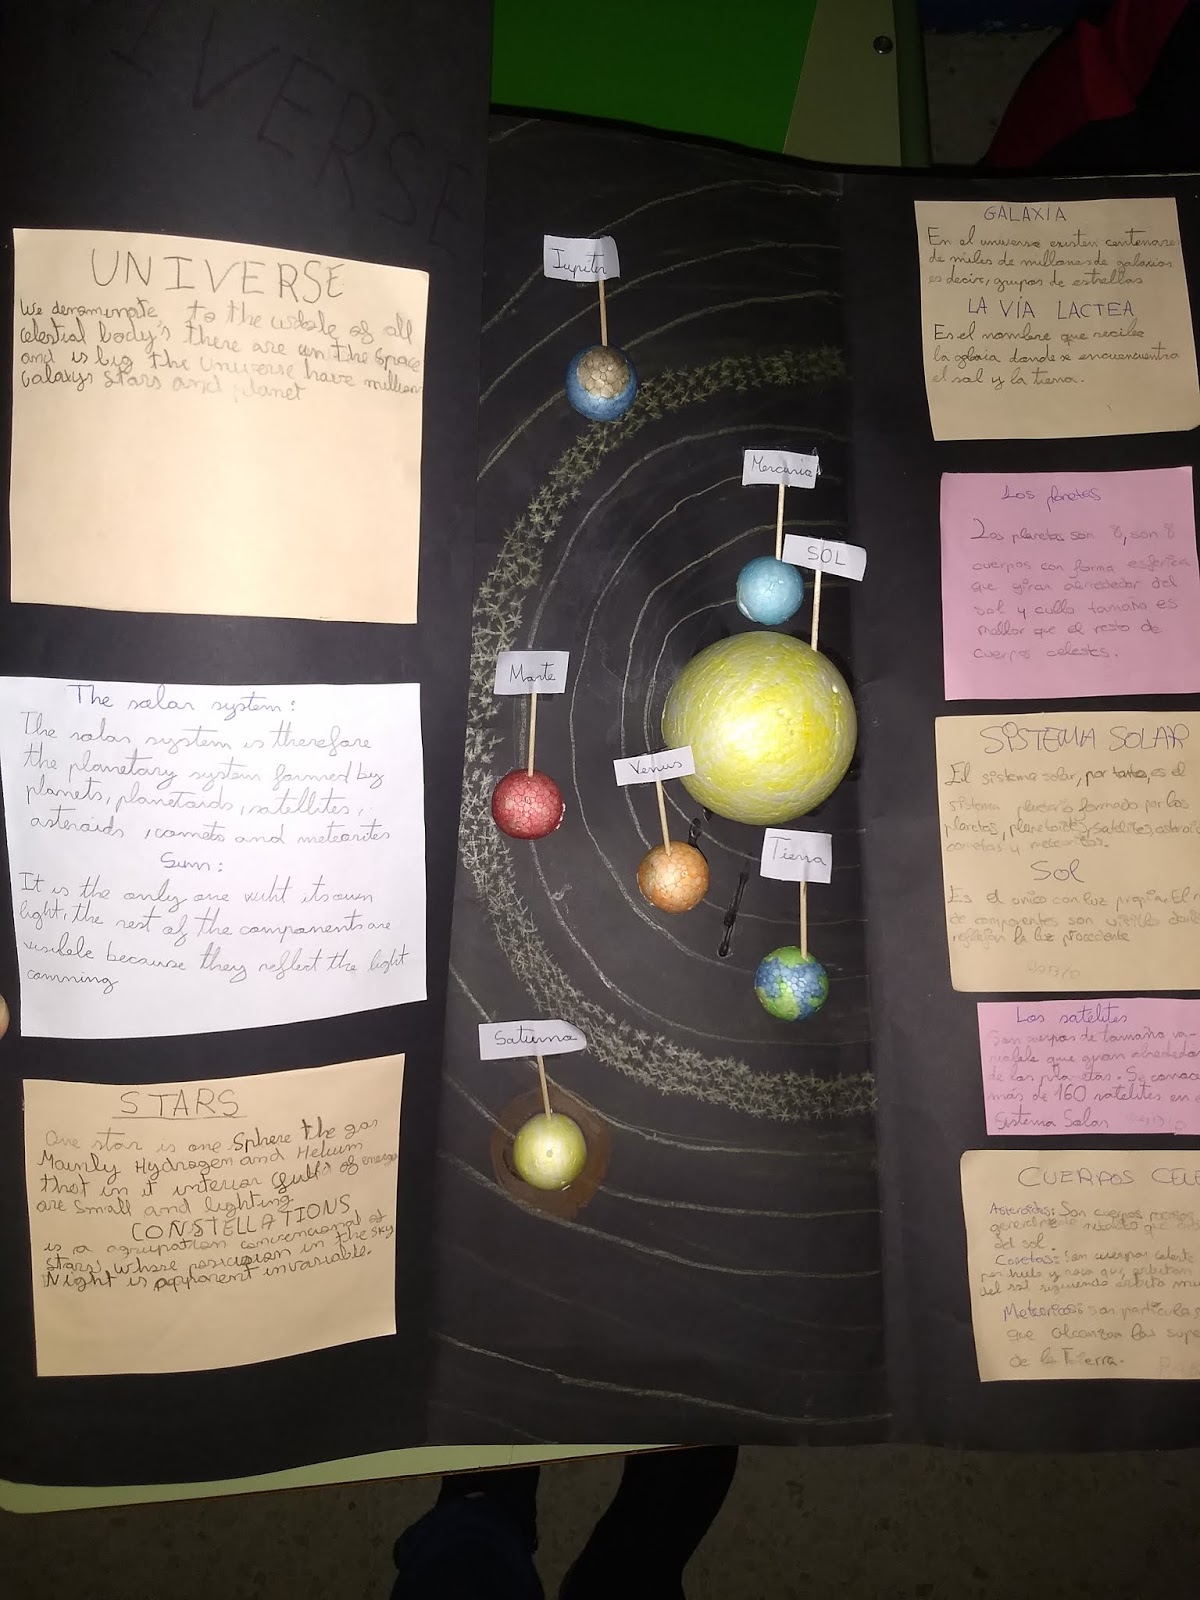 UNIVERSE
UNIVERSE
We denominate to the whole of all
celestial body's there are un the space
and is big the Universe have million
Galaxys Stars and planet
The solar system:
The solar system is therefore
the planetary system formed by
planets, planetoids, satellites,
asteroids, comets and meteorites
Sun:
It is the only one wiht its own
light, the rest of the components are
visibele because they reflect the light
comming
STARS
One star is one sphere the gas
Mainly Hydrogen and Helium
that in it interior of energy
are small and lighting
CONSTELLATIONS
is a agrupation convencional of
stars, whose posicusion in the sky
Night is apparent invariable.
Jupiter
Mercurio
SOL
Marte
Venus
Tierra
Saturno
GALAXIA
En el universo existen centenares
de miles de millones de galaxias
es decir, grupos de estrellas
LA VÍA LACTEA
Es el nombre que recibe
la galaxia donde se encuencuentra
el sol y la tierra.
Los planetas
Los planetas son 8, son 8
cuerpos con forma esferica
que giran alrededor del
sol y cullo tamaño es
mallor que el resto de
cuerpos celestes.
SISTEMA SOLAR
El sistema solar, por tanto, es el
sistema planetario formado por los
planetas, planetoides, satelites, asteroi
cometas y meteoritos.
Sol
Es el unico con luz propia. El r
de componentes son visibles
reflejan la luz procedente
Los satelites
Son cuerpos de tamaño va-
riable que giran alrededor
de los planetas. Se conoce
más de 160 satelites en e
Sistema Solar
CUERPOS CELE
Asteroides: Son cuerpos
generalmente que
del sol.
Cometas: Son cuerpos celeste
por hielo y roca que orbitan
del sol siguiendo orbita mu
Meteoritos: son particulas
que alcanzan las supe
de la Tierra.